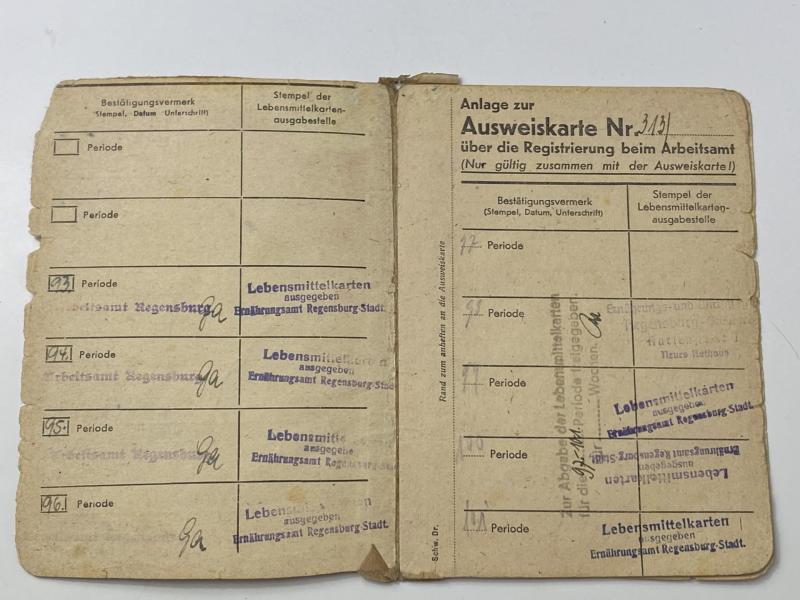 Bestätigungsvermerk
(Stempel, Datum Unterschrift)
Stempel der
Lebensmittelkarten-
ausgabestelle
Periode
Periode
93. Periode
Arbeitsamt Regensburg
Ga
Lebensmittelkarten
ausgegeben
Ernährungsamt Regensburg-Stadt.
94. Periode
Arbeitsamt Regensburg
Ga
Lebensmittelkarten
ausgegeben
Ernährungsamt Regensburg-Stadt
95. Periode
Arbeitsamt Regensburg
Ga
Lebensmittelkarten
ausgegeben
Ernährungsamt Regensburg-Stadt
96. Periode
Ga
Lebensmittelkarten
ausgegeben
Ernährungsamt Regensburg-Stadt.
Anlage zur
Ausweiskarte Nr. 313
über die Registrierung beim Arbeitsamt
(Nur gültig zusammen mit der Ausweiskarte!)
Bestätigungsvermerk
(Stempel, Datum, Unterschrift)
Stempel der
Lebensmittelkarten-
ausgabestelle
97 Periode
98 Periode
Regensburg
Neues Rathaus
99 Periode
Lebensmittelkarten
ausgegeben
Ernährungsamt Regensburg-Stadt.
100 Periode
Lebensmittelkarten
ausgegeben
Ernährungsamt Regensburg-Stadt.
101 Periode
Lebensmittelkarten
ausgegeben
Ernährungsamt Regensburg-Stadt.
Zur Abgabe der Lebensmittelkarten
für die 97.-101. Periode freigegeben.
für Wochen.
Rand zum anheften an die Ausweiskarte
Schw. Dr.